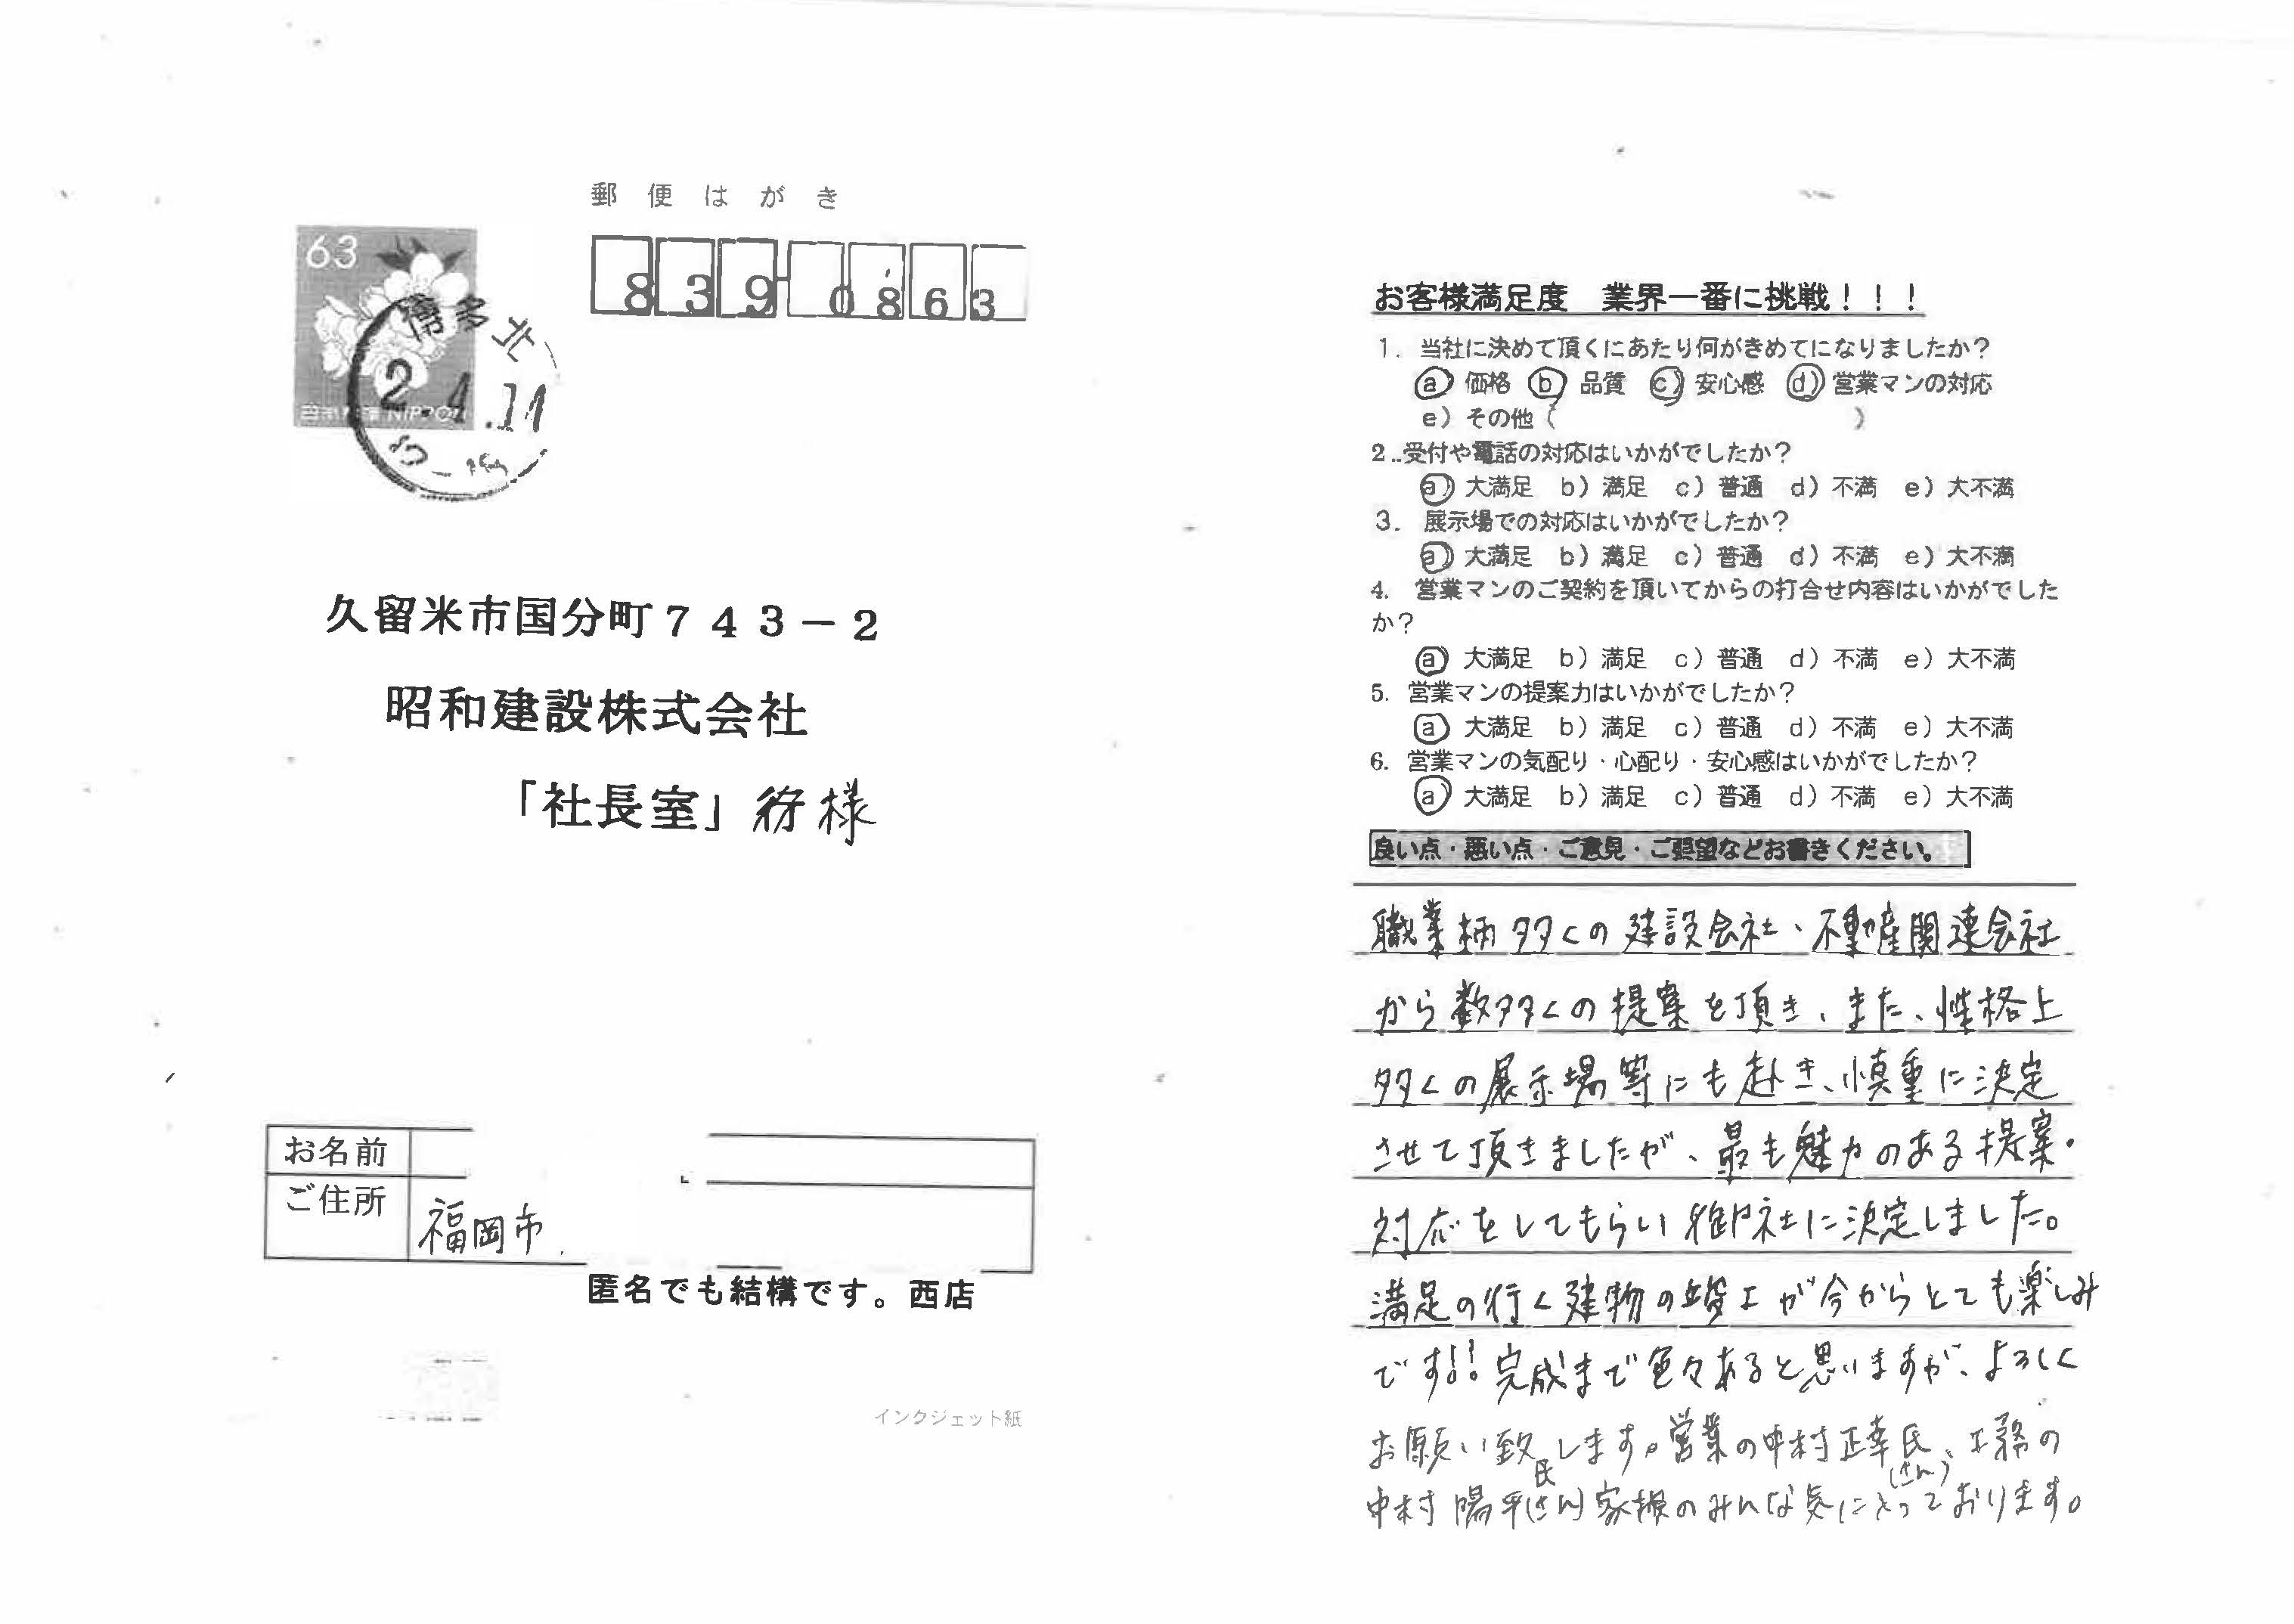 郵便はがき
63
日本郵便 NIPPON
博多北
2.4.11
839-0863
久留米市国分町743-2
昭和建設株式会社
「社長室」行様
お名前
ご住所 福岡市
匿名でも結構です。西店
インクジェット紙
お客様満足度 業界一番に挑戦！！！
1. 当社に決めて頂くにあたり何がきめてになりましたか？
a) 価格 b) 品質 c) 安心感 d) 営業マンの対応
e) その他 ( )
2..受付や電話の対応はいかがでしたか？
a) 大満足 b) 満足 c) 普通 d) 不満 e) 大不満
3. 展示場での対応はいかがでしたか？
a) 大満足 b) 満足 c) 普通 d) 不満 e) 大不満
4. 営業マンのご契約を頂いてからの打合せ内容はいかがでした
か？
a) 大満足 b) 満足 c) 普通 d) 不満 e) 大不満
5. 営業マンの提案力はいかがでしたか？
a) 大満足 b) 満足 c) 普通 d) 不満 e) 大不満
6. 営業マンの気配り・心配り・安心感はいかがでしたか？
a) 大満足 b) 満足 c) 普通 d) 不満 e) 大不満
良い点・悪い点・ご意見・ご要望などお書きください。
職業柄多くの建設会社、不動産関連会社
から数多くの提案を頂き、また、性格上
多くの展示場等にも赴き、慎重に決定
させて頂きましたが、最も魅力のある提案・
対応をしてもらい御社に決定しました。
満足の行く建物の竣工が今からとても楽しみ
です!! 完成まで色々あると思いますが、よろしく
お願い致します。営業の中村正幸氏(さん)、工務の
中村陽平氏(さん)家族のみんな気に入っております。